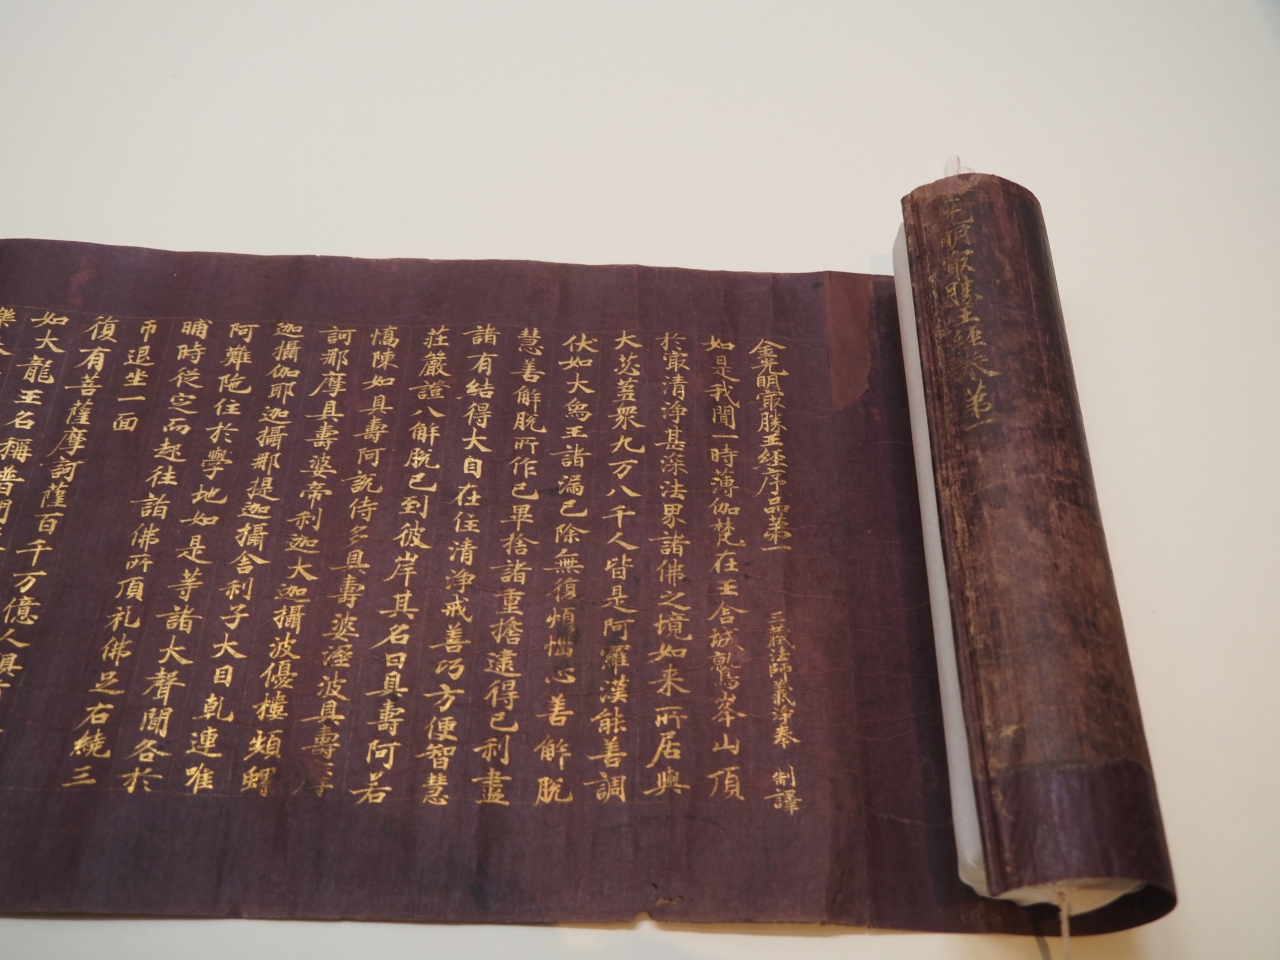 光明冣勝王經卷苐一
金光明冣勝王經序品苐一 三藏法師義淨奉 制譯
如是我聞一時薄伽梵在王舍城鷲峯山頂
於冣清淨甚深法界諸佛之境如來所居與
大苾蒭衆九万八千人皆是阿羅漢能善調
伏如大象王諸漏已除無復煩惱心善解脫
慧善解脫所作已畢捨諸重擔逮得已利盡
諸有結得大自在住清淨戒善巧方便智慧
莊嚴證八解脫已到彼岸其名曰具壽阿若
憍陳如具壽阿說侍多具壽婆溼波具壽摩
訶那摩具壽婆帝利迦大迦攝波優樓頻螺
迦攝伽耶迦攝那提迦攝舍利子大目乹連唯
阿難陁住於學地如是等諸大聲聞各於
晡時從定而起往詣佛所頂礼佛足右繞三
帀退坐一面
復有菩薩摩訶薩百千万億人俱
如大龍王名稱普聞